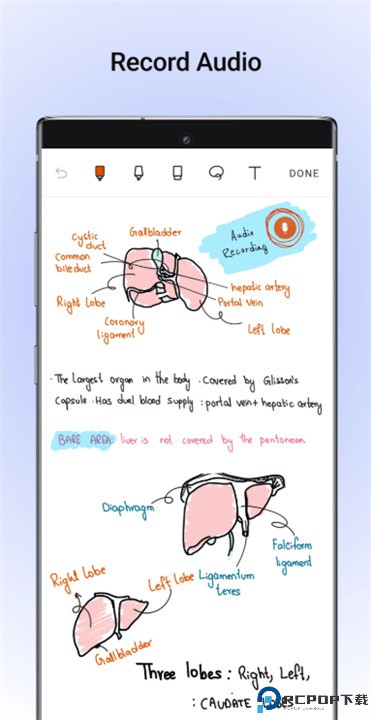 Record Audio
DONE
Audio
Recording
Cystic
duct
Gallbladder
Common
bile duct
Right lobe
Coronary
ligament
hepatic artery
Portal vein
Left lobe
· The largest organ in the body · Covered by Glisson's
Capsule · Has duel blood supply : portal vein + hepatic artery
BARE AREA: liver is not covered by the peritoneum
Diaphragm
Falciform
ligament
Ligamentum
teres
Right lobe
Left lobe
Gallbladder
Three lobes : Right, Left,
: CAUDATE LOBES
RCPOP下载